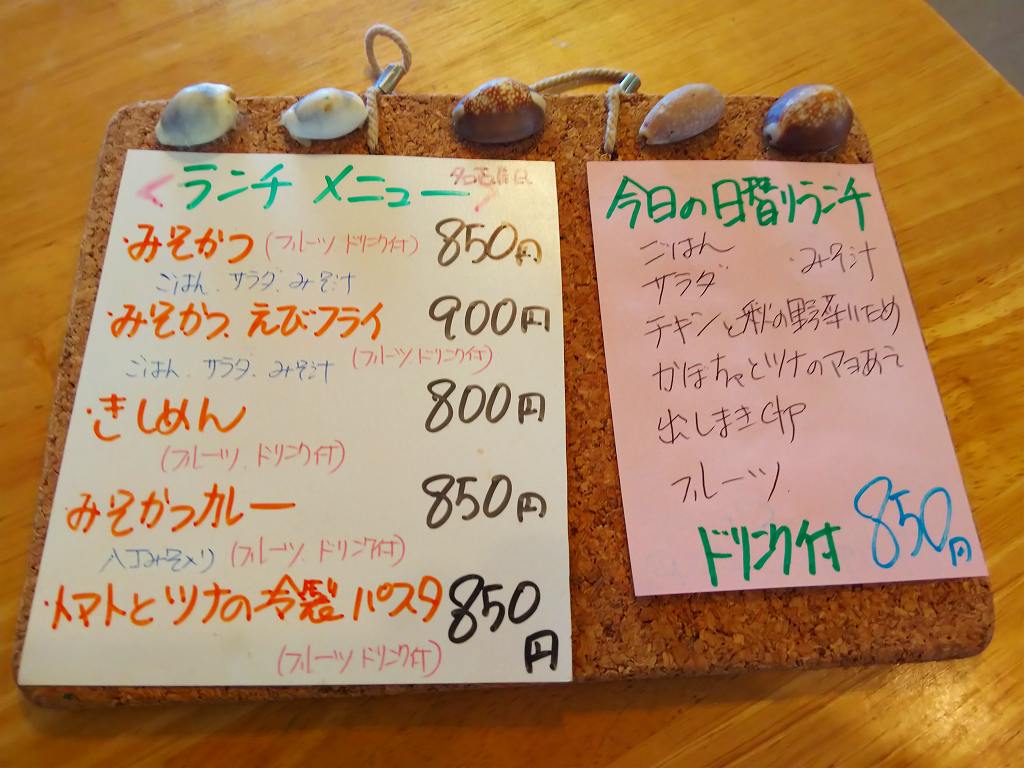 <ランチ メニュー>
・みそかつ (フルーツ ドリンク付) 850円
ごはん、サラダ、みそ汁
・みそかつ、えびフライ 900円
ごはん、サラダ、みそ汁 (フルーツ、ドリンク付)
・きしめん 800円
(フルーツ、ドリンク付)
・みそかつカレー 850円
八丁みそ入り (フルーツ、ドリンク付)
・トマトとツナの冷製パスタ 850円
(フルーツ ドリンク付)
今日の日替りランチ
ごはん みそ汁
サラダ
チキンと秋の野菜いため
かぼちゃとツナのマヨあえ
出しまき
フルーツ
ドリンク付 850円